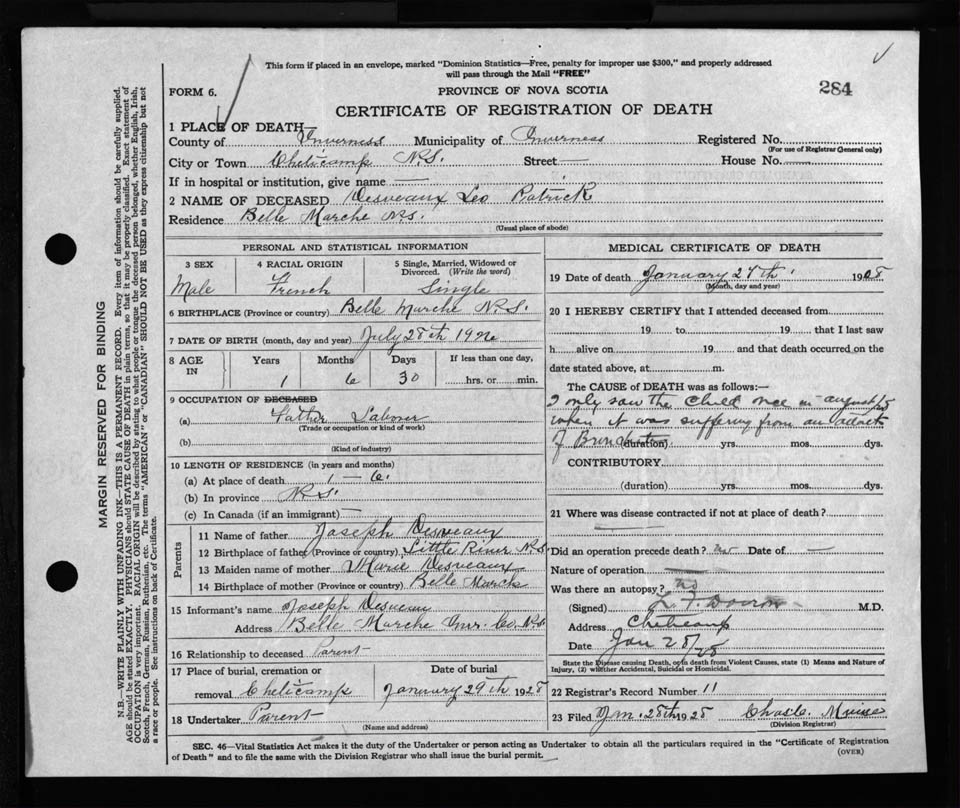 This form if placed in an envelope, marked "Dominion Statistics—Free, penalty for improper use $300," and properly addressed
will pass through the Mail "FREE"
FORM 6.
PROVINCE OF NOVA SCOTIA
284
CERTIFICATE OF REGISTRATION OF DEATH
1 PLACE OF DEATH—
County of Inverness Municipality of Inverness Registered No.
(For use of Registrar General only)
City or Town Cheticamp N.S. Street — House No.
If in hospital or institution, give name —
2 NAME OF DECEASED Desveaux Leo Patrick
Residence Belle Marche N.S.
(Usual place of abode)
PERSONAL AND STATISTICAL INFORMATION
3 SEX 4 RACIAL ORIGIN 5 Single, Married, Widowed or Divorced. (Write the word)
Male French Single
6 BIRTHPLACE (Province or country) Belle Marche N.S.
7 DATE OF BIRTH (month, day and year) July 28th 192
8 AGE IN Years Months Days If less than one day,
1 6 30 hrs. or min.
9 OCCUPATION OF DECEASED
(a) Father Laborer
(Trade or occupation or kind of work)
(b)
(Kind of industry)
10 LENGTH OF RESIDENCE (in years and months)
(a) At place of death 1 — 6.
(b) In province N.S.
(c) In Canada (if an immigrant) —
Parents
11 Name of father Joseph Desveaux
12 Birthplace of father (Province or country) Little River N.S.
13 Maiden name of mother Marie Desveaux
14 Birthplace of mother (Province or country) Belle Marche
15 Informant's name Joseph Desveaux
Address Belle Marche Inv. Co. N.S.
16 Relationship to deceased Parent
17 Place of burial, cremation or removal Cheticamp Date of burial January 29th 1928
18 Undertaker Parent
(Name and address)
MEDICAL CERTIFICATE OF DEATH
19 Date of death January 27th 1928
(Month, day and year)
20 I HEREBY CERTIFY that I attended deceased from
19 to 19 that I last saw
h alive on 19 and that death occurred on the
date stated above, at m.
The CAUSE of DEATH was as follows:—
I only saw the child once in august
when it was suffering from an attack
of (duration) yrs. mos. dys.
CONTRIBUTORY
(duration) yrs. mos. dys.
21 Where was disease contracted if not at place of death?
Did an operation precede death? no Date of —
Nature of operation
Was there an autopsy? no
(Signed) M.D.
Address Cheticamp
Date Jan 28/28
State the Disease causing Death, or in death from Violent Causes, state (1) Means and Nature of
Injury, (2) whether Accidental, Suicidal or Homicidal.
22 Registrar's Record Number 11
23 Filed Jan. 28th 1928
(Division Registrar)
SEC. 46—Vital Statistics Act makes it the duty of the Undertaker or person acting as Undertaker to obtain all the particulars required in the "Certificate of Registration
of Death" and to file the same with the Division Registrar who shall issue the burial permit.
(OVER)
MARGIN RESERVED FOR BINDING
N.B.—WRITE PLAINLY WITH UNFADING INK—THIS IS A PERMANENT RECORD. Every item of information should be carefully supplied.
AGE should be stated EXACTLY. PHYSICIANS should STATE CAUSE OF DEATH in plain terms, so that it may be properly classified. Exact statement of
OCCUPATION is very important. RACIAL ORIGIN will be described by stating to what people or tongue the deceased person belonged, whether English, Irish,
Scotch, French, German, Russian, Ruthenian, etc. The terms "AMERICAN" or "CANADIAN" SHOULD NOT BE USED as they express citizenship but not
a race or people. See instructions on back of Certificate.